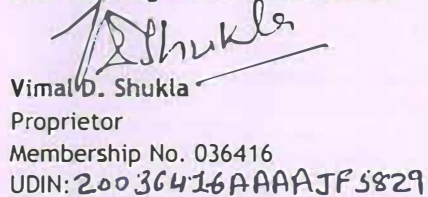 Shukla
Vimal D. Shukla
Proprietor
Membership No. 036416
UDIN: 20036416AAAAJF5829